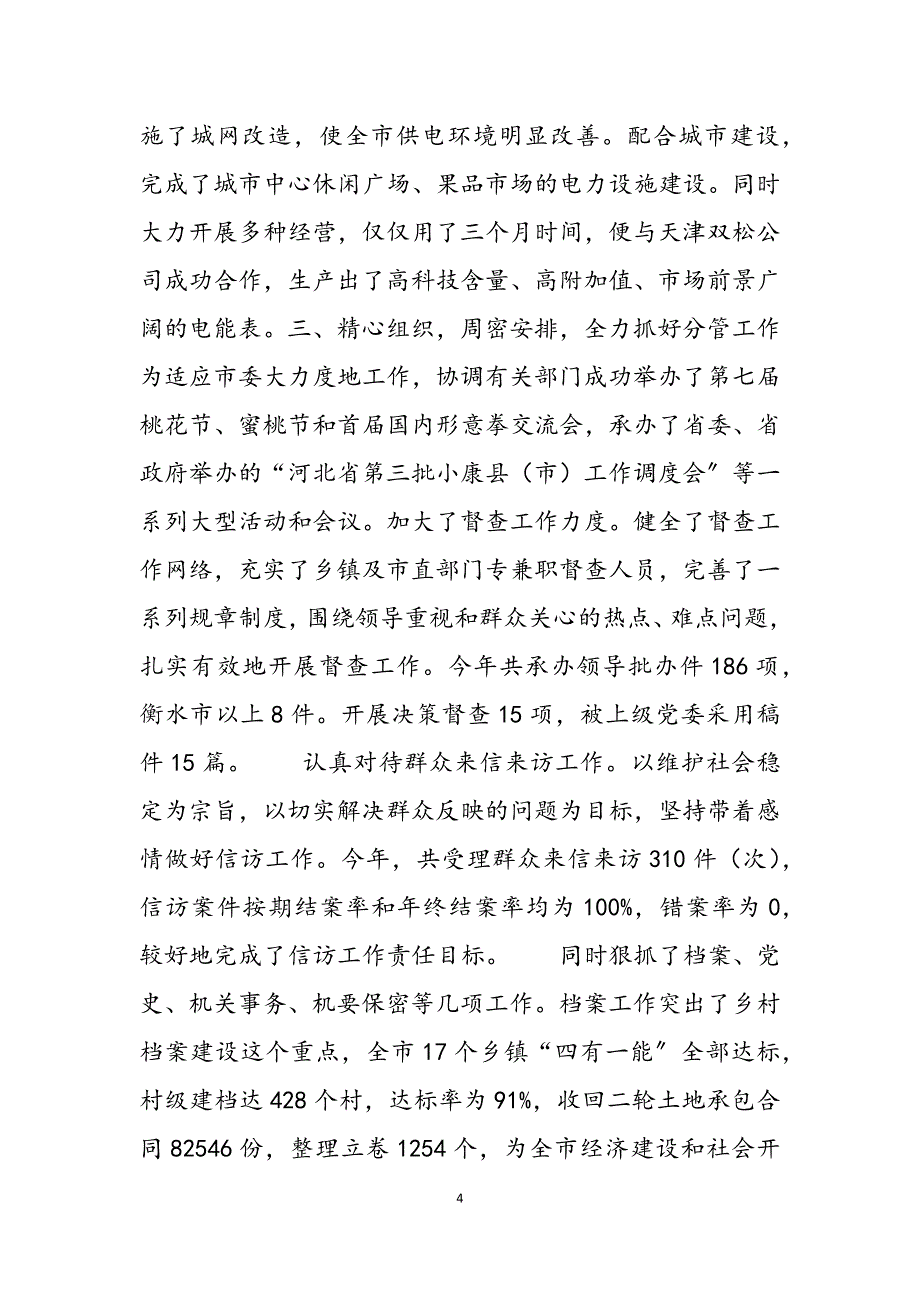 施了城网改造，使全市供电环境明显改善。配合城市建设，
完成了城市中心休闲广场、果品市场的电力设施建设。同时
大力开展多种经营，仅仅用了三个月时间，便与天津双松公
司成功合作，生产出了高科技含量、高附加值、市场前景广
阔的电能表。三、精心组织，周密安排，全力抓好分管工作
为适应市委大力度地工作，协调有关部门成功举办了第七届
桃花节、蜜桃节和首届国内形意拳交流会，承办了省委、省
政府举办的“河北省第三批小康县（市）工作调度会〞等一
系列大型活动和会议。加大了督查工作力度。健全了督查工
作网络，充实了乡镇及市直部门专兼职督查人员，完善了一
系列规章制度，围绕领导重视和群众关心的热点、难点问题，
扎实有效地开展督查工作。今年共承办领导批办件 186 项，
衡水市以上 8 件。开展决策督查 15 项，被上级党委采用稿
件 15 篇。　　认真对待群众来信来访工作。以维护社会稳
定为宗旨，以切实解决群众反映的问题为目标，坚持带着感
情做好信访工作。今年，共受理群众来信来访 310 件（次），
信访案件按期结案率和年终结案率均为 100%，错案率为 0，
较好地完成了信访工作责任目标。　　同时狠抓了档案、党
史、机关事务、机要保密等几项工作。档案工作突出了乡村
档案建设这个重点，全市 17 个乡镇“四有一能〞全部达标，
村级建档达 428 个村，达标率为 91%，收回二轮土地承包合
同 82546 份，整理立卷 1254 个，为全市经济建设和社会开
4